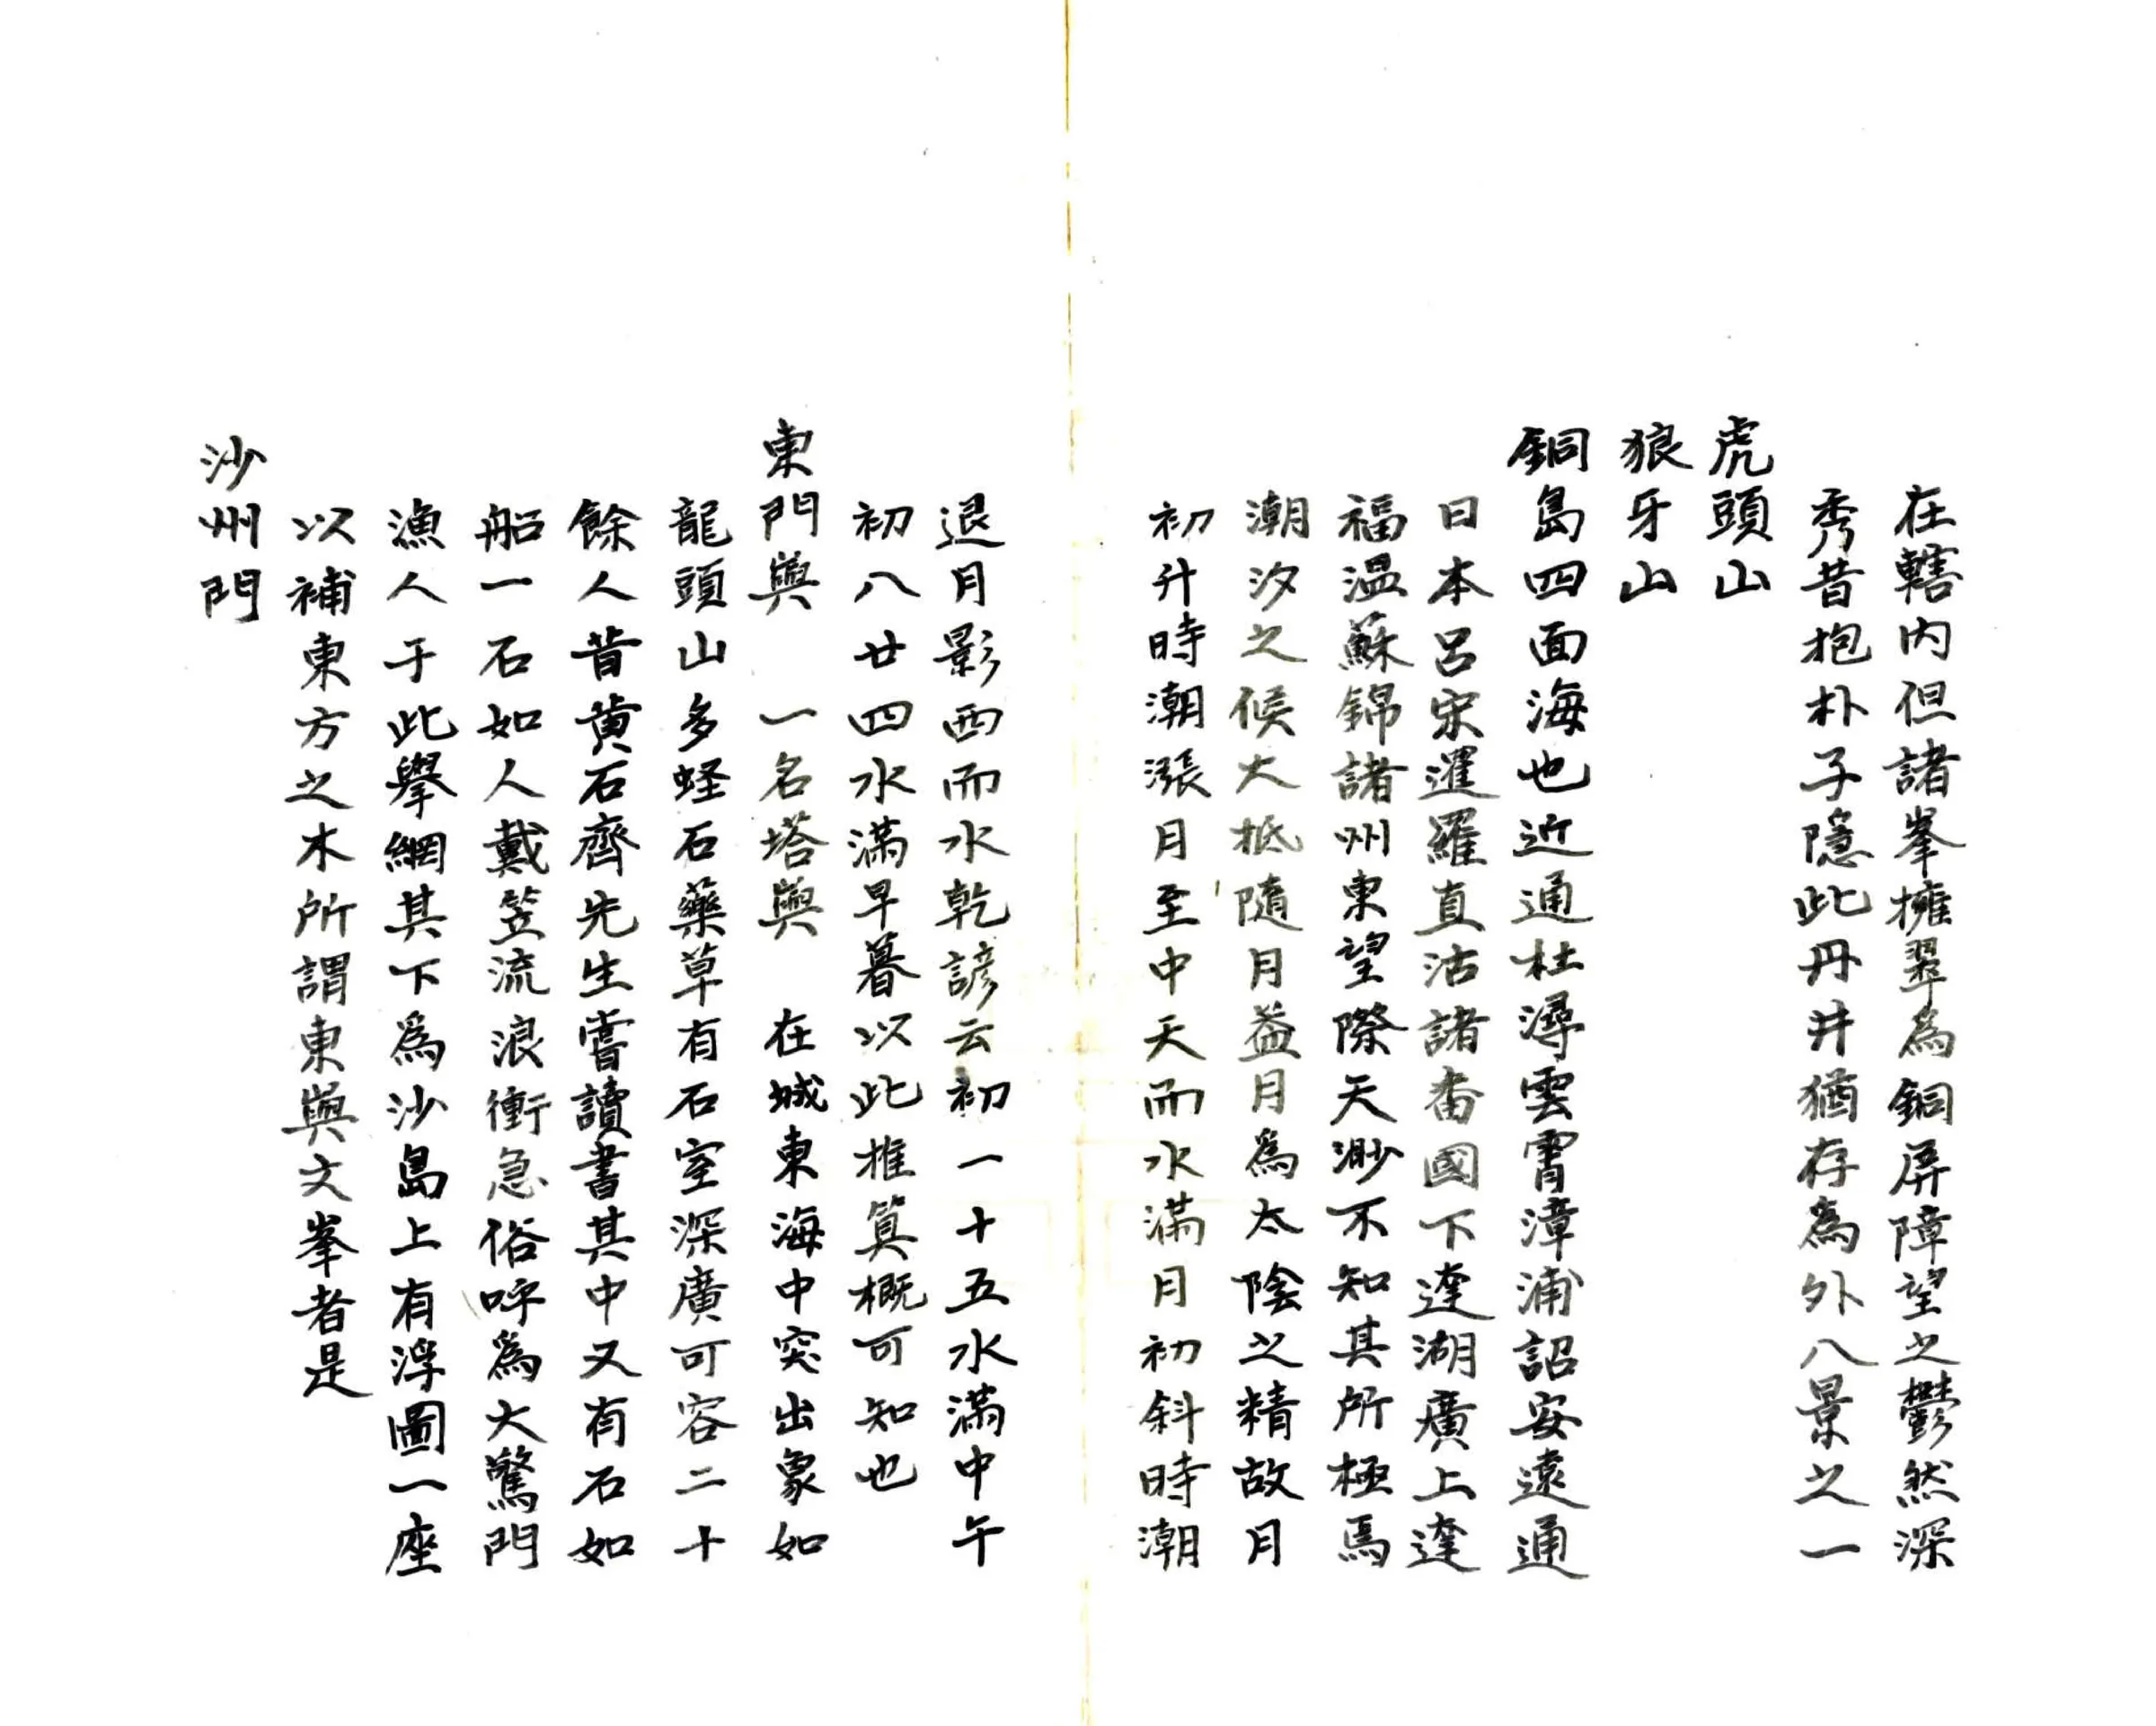 在轄内但諸峯擁翠為銅屏障望之鬱然深
秀昔抱朴子隱此丹井猶存為外八景之一
虎頭山
狼牙山
銅島四面海也近通杜潯雲霄漳浦詔安遠通
日本呂宋暹羅直沽諸番國下達湖廣上達
福溫蘇錦諸州東望際天渺不知其所極焉
潮汐之候大抵隨月益月為太陰之精故月
初升時潮漲月至中天而水滿月初斜時潮
退月影西而水乾諺云初一十五水滿中午
初八廿四水滿早暮以此推算概可知也
東門與 一名塔與 在城東海中突出象如
龍頭山多蛏石藥草有石室深廣可容二十
餘人昔黄石齊先生嘗讀書其中又有石如
船一石如人戴笠流浪衝急俗呼為大驚門
漁人于此舉網其下為沙島上有浮圖一座
以補東方之木所謂東與文峯者是
沙州門